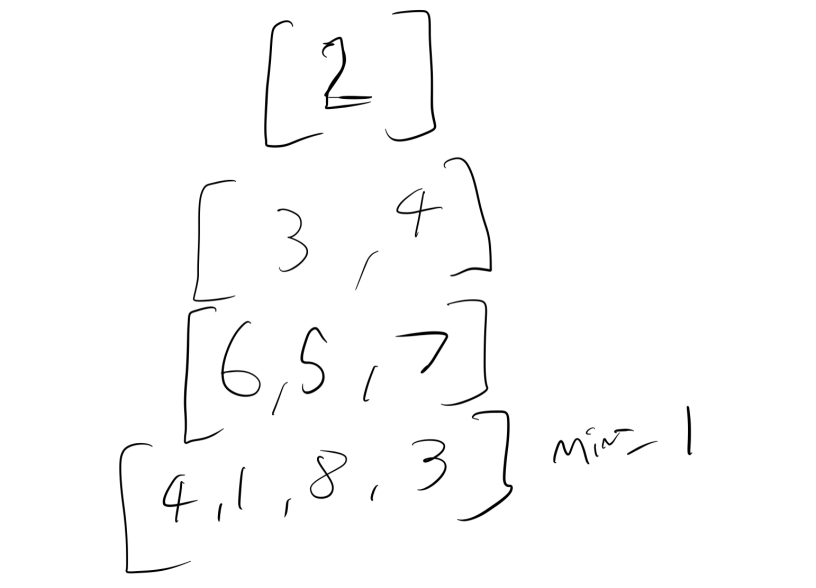 [2]
[3, 4]
[6, 5, 7]
[4, 1, 8, 3] min = 1